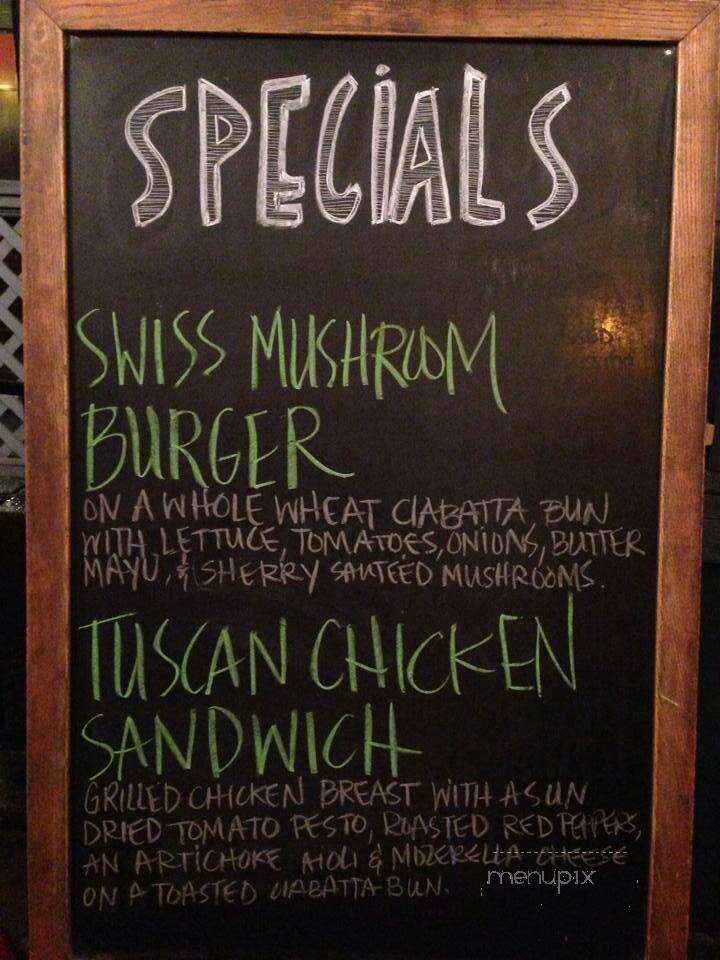 SPECiALS
SWISS MUSHROOM
BURGER
ON A WHOLE WHEAT CIABATTA BUN
WITH LETTUCE, TOMATOES, ONIONS, BUTTER
MAYO, & SHERRY SAUTEED MUSHROOMS.
TUSCAN CHICKEN
SANDWICH
GRILLED CHICKEN BREAST WITH A SUN
DRIED TOMATO PESTO, ROASTED RED PEPPERS,
AN ARTiCHOKE AiOLi & MOZERELLA CHEESE
ON A TOASTED CIABATTA BUN.
menupix